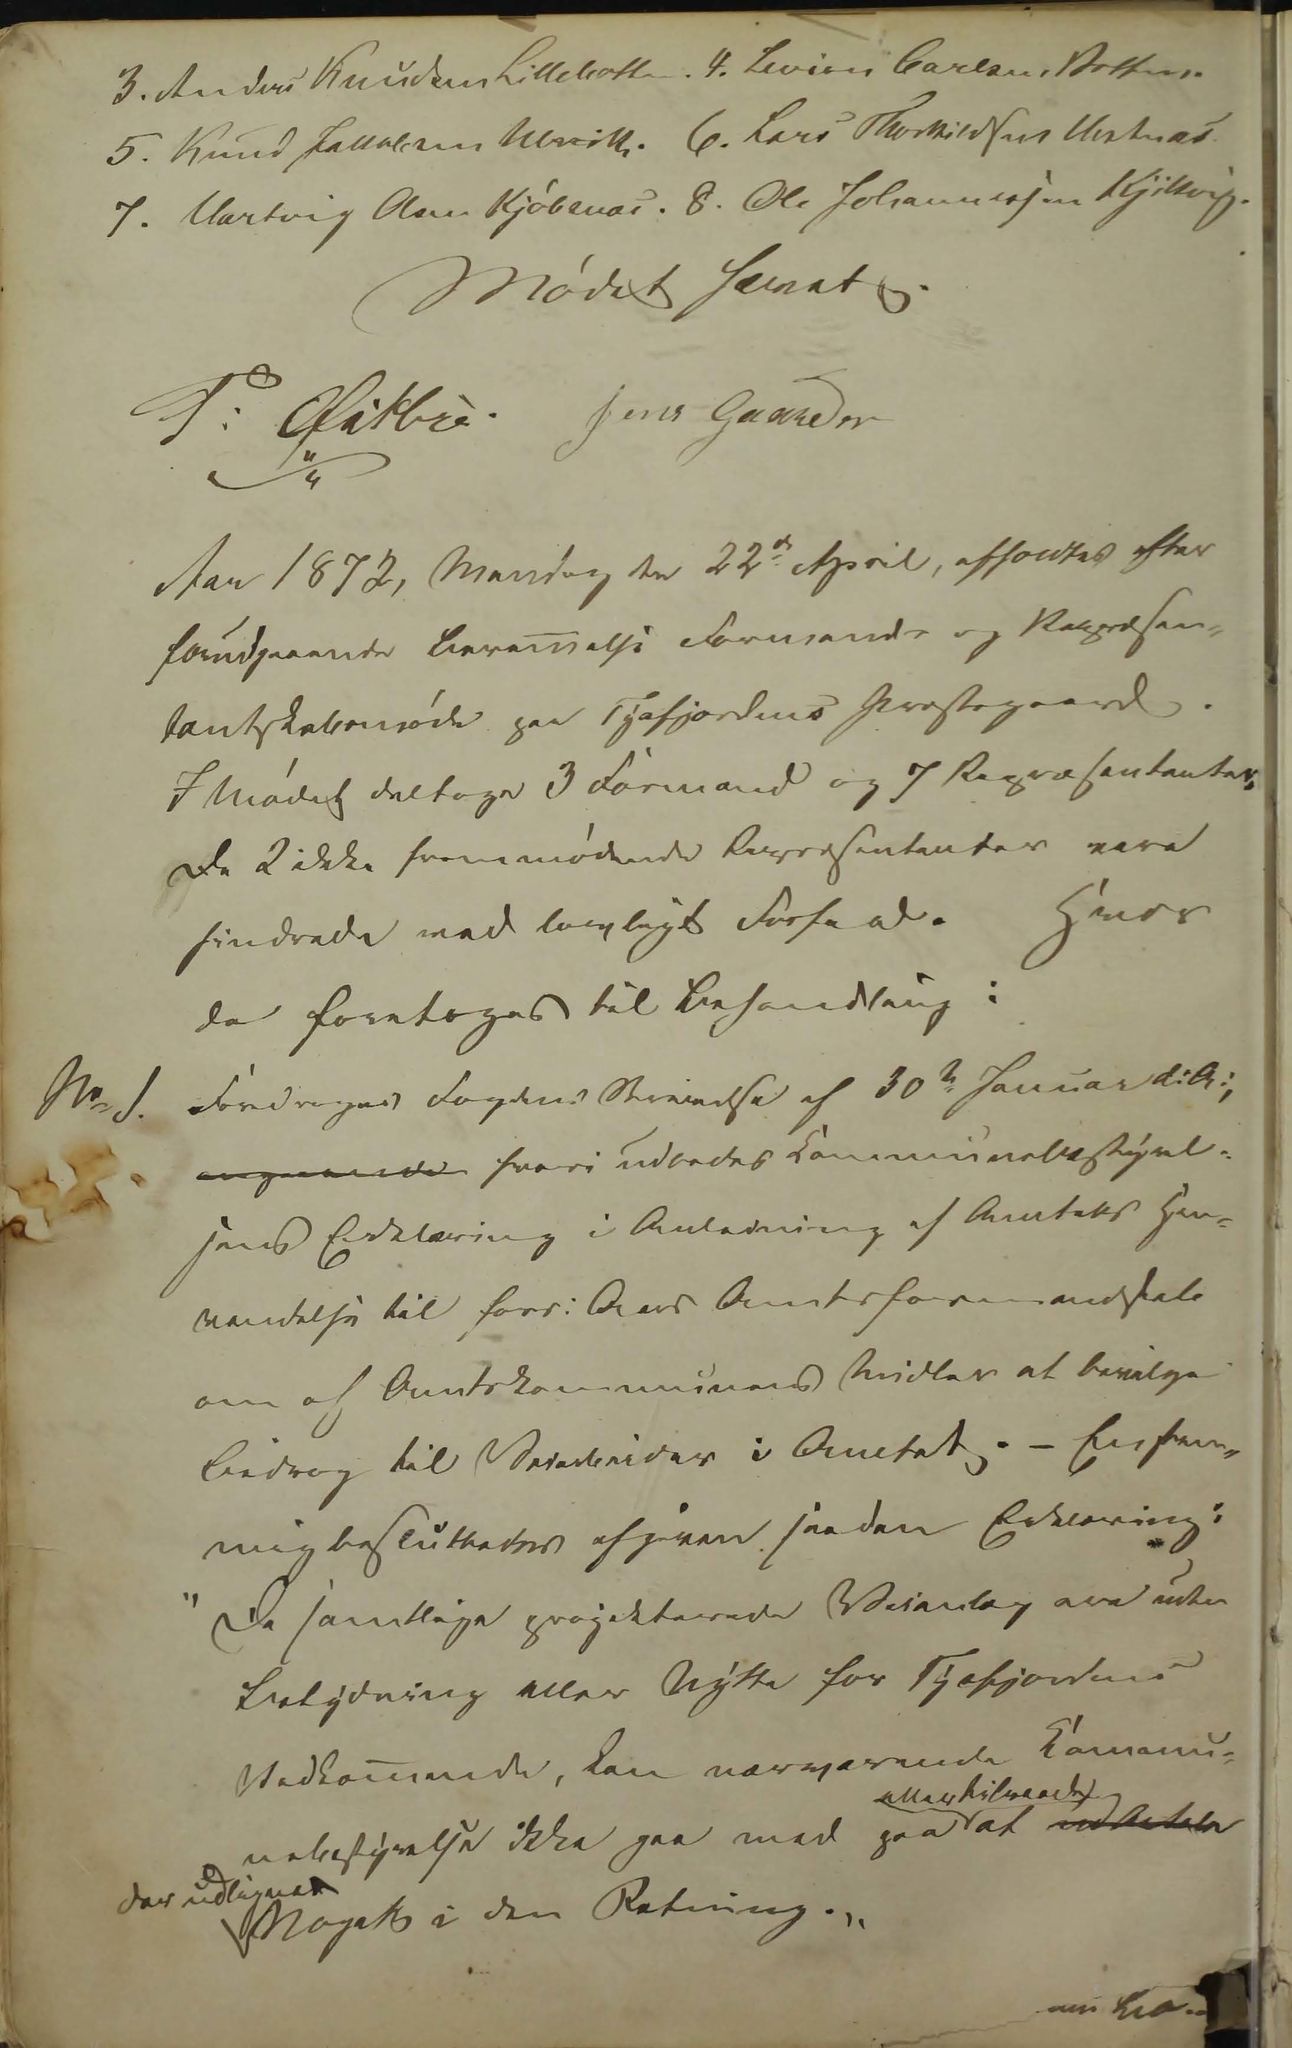 3. Anders Knudsen Lillebotten. 4. Levin Carlsen Botten.
5. Knud Jakobsen Ulvik. 6. Lars Thorkildsen Vestnæs.
7. Hartvig Olsen Kjöbsnæs. 8. Ole Johannessen Kjelkvig.
Mödet hævet.
P: Østbye. Jens Gaarder
Aar 1872, Mandag den 22de April, afholdtes efter
forudgaaende Berammelse Formands- og Repræsen-
tantskabsmöde paa Tysfjordens Præstegaard.
I Mödet deltoge 3 Formænd og 7 Repræsentanter,
De 2 ikke fremmödende Repræsentanter vare
hindrede ved lovligt Forfald. Hvor
da foretoges til Behandling:
No 1. Foredroges Fogdens Skrivelse af 30te Januar d: A:,
angaaende hvori udbedes Kommunebestyrel-
sens Erklæring i Anledning af Amtets Hen-
vendelse til forr: Aars Amtsformandskab
om af Amtskommunens Midler at bevilge
Bidrag til Veiarbeider i Amtet. – Enstem-
mig besluttedes afgiven saadan Erklæring:
"Da samtlige projekterede Veianlæg ere uden
Betydning eller Nytte for Tysfjordens
Vedkommende, kan nærværende Kommu-
eller tilraade
nebestyrelse ikke gaa med paa at
der udlignes
Noget i den Retning."